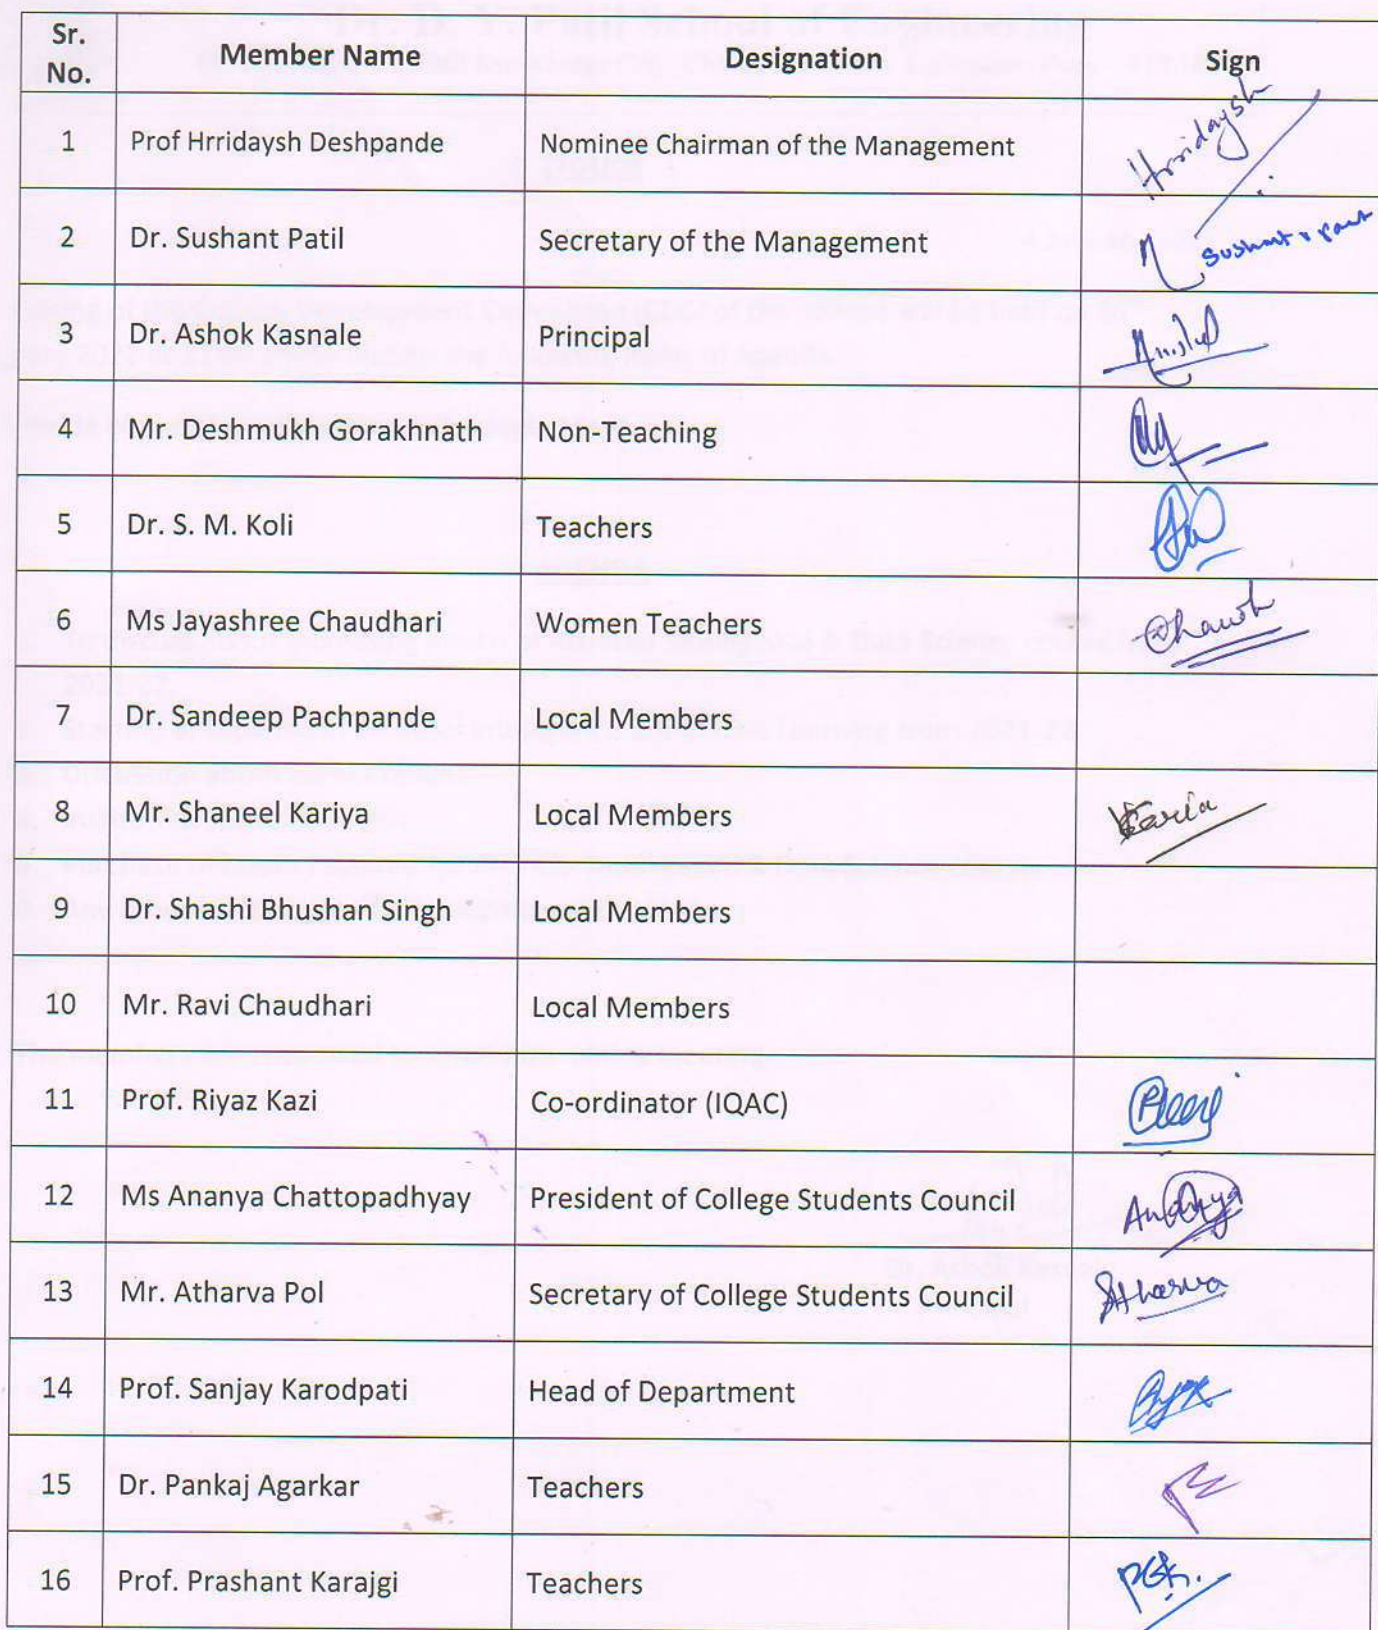 Sr. No. Member Name Designation Sign
1 Prof Hrridaysh Deshpande Nominee Chairman of the Management Hrridaysh
2 Dr. Sushant Patil Secretary of the Management Sushant
3 Dr. Ashok Kasnale Principal
4 Mr. Deshmukh Gorakhnath Non-Teaching
5 Dr. S. M. Koli Teachers
6 Ms Jayashree Chaudhari Women Teachers
7 Dr. Sandeep Pachpande Local Members
8 Mr. Shaneel Kariya Local Members
9 Dr. Shashi Bhushan Singh Local Members
10 Mr. Ravi Chaudhari Local Members
11 Prof. Riyaz Kazi Co-ordinator (IQAC)
12 Ms Ananya Chattopadhyay President of College Students Council Ananya
13 Mr. Atharva Pol Secretary of College Students Council Atharva
14 Prof. Sanjay Karodpati Head of Department
15 Dr. Pankaj Agarkar Teachers
16 Prof. Prashant Karajgi Teachers